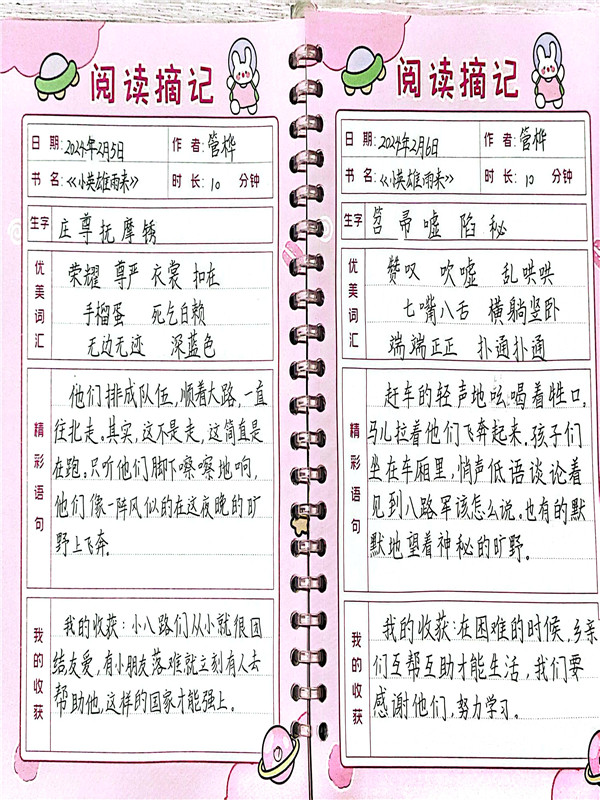 阅读摘记
日期:2024年2月5日 作者:管桦
书名:《小英雄雨来》 时长:10 分钟
生字 庄 尊 抚 摩 锈
优美词汇
荣耀 尊严 衣裳 扣在
手榴蛋 死乞白赖
无边无迹 深蓝色
精彩语句
他们排成队伍,顺着大路,一直
往北走。其实,这不是走,这简直是
在跑:只听他们脚下嚓嚓地响,
他们像一阵风似的在这夜晚的旷
野上飞奔。
我的收获
我的收获:小八路们从小就很团
结友爱,有小朋友落难就立刻有人去
帮助他,这样的国家才能强上。
阅读摘记
日期:2024年2月6日 作者:管桦
书名:《小英雄雨来》 时长:10 分钟
生字 笤 帚 嘘 陷 秘
优美词汇
赞叹 吹嘘 乱哄哄
七嘴八舌 横躺竖卧
端端正正 扑通扑通
精彩语句
赶车的轻声地吆喝着牲口,
马儿拉着他们飞奔起来,孩子们
坐在车厢里,悄声低语谈论着
见到八路军该怎么说。也有的默
默地望着神秘的旷野。
我的收获
我的收获:在困难的时候,乡亲
们互帮互助才能生活,我们要
感谢他们,努力学习。